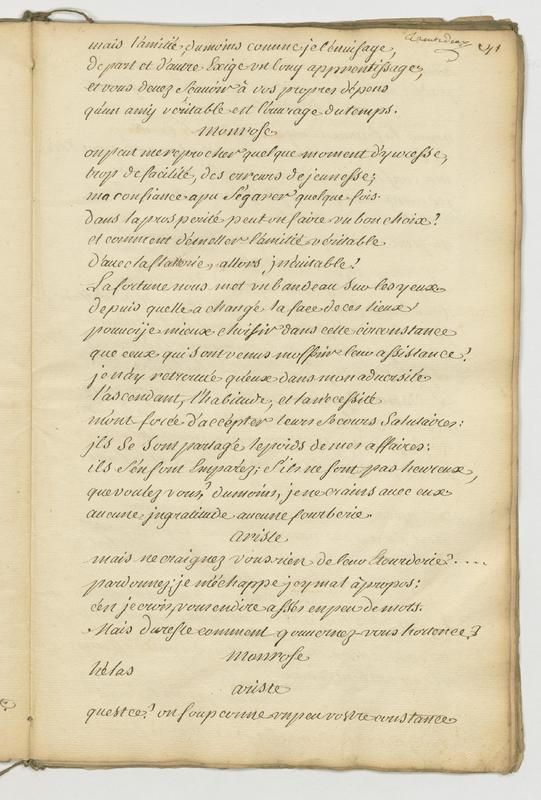 41
mais l'amitié, dumoins comme je l'énvisage,
de part et d'autre Exige un long apprentissage;
et vous devez Sçavoir à vos propres dépens
qu'un amy véritable est l'ouvrage du temps.
Monrose
on peut me reprocher quelque moment d'yvresse,
trop de facilité, des erreurs de jeunesse;
ma confiance a pu S'égarer quelque fois.
dans la prosperité peut on faire un bon choix?
et comment démesler l'amitié véritable
d'avec la flatterie, allors, jnévitable?
La fortune nous met un bandeau Sur les yeux
depuis qu'elle a changé la face de ces lieux
pouvoije mieux choisir dans cette circonstance
que ceux qui Sont venus m'offrir leur assistance?
je n'ay retrouvé qu'eux dans mon adversité
l'ascendant, l'habitude, et la nécessité
m'ont forcé d'accépter leurs Secours Salutaires:
jls Se Sont partagé le poids de mes affaires:
ils S'én Sont Emparéz; S'ils ne Sont pas heureux,
que voulez vous? dumoins, je ne crains avec eux
aucune jngratitude aucune fourberie.
ariste
mais ne craignez vous rien de leur Etourderie?....
pardonnez; je m'échappe jcy mal à propos:
c'én je crois, vous en dire assés en peu de mots.
Mais du reste comment gouvernez-vous hortence?
Monrose
hélas
ariste
quest ce? on Soupçonne un peu vostre constance